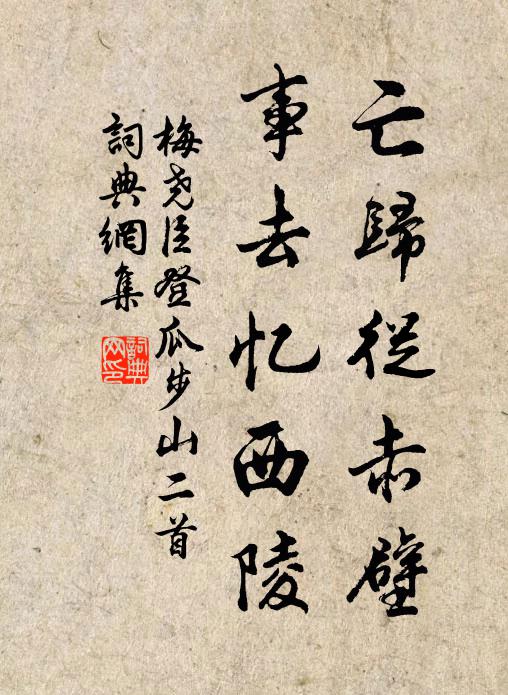 亡歸從赤壁
事去忆西陵
梅尧臣登瓜步山二首
詞典網集
詞典网印